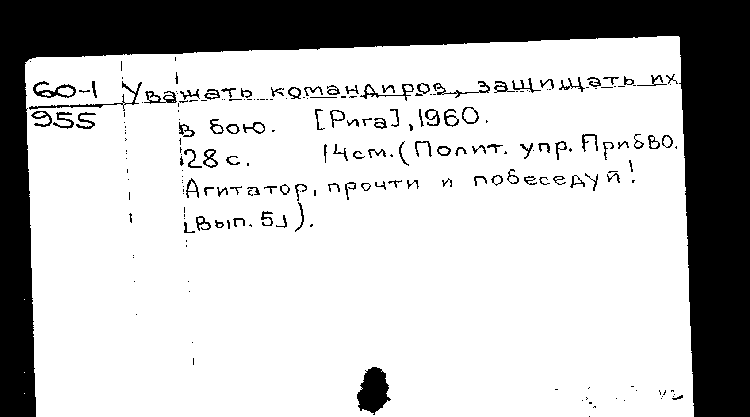 60-1 Уважать командиров, защищать их
955 в бою. [Рига], 1960.
28 с. 14 см. (Полит. упр. ПрибВО.
Агитатор, прочти и побеседуй!
[Вып. 5]).